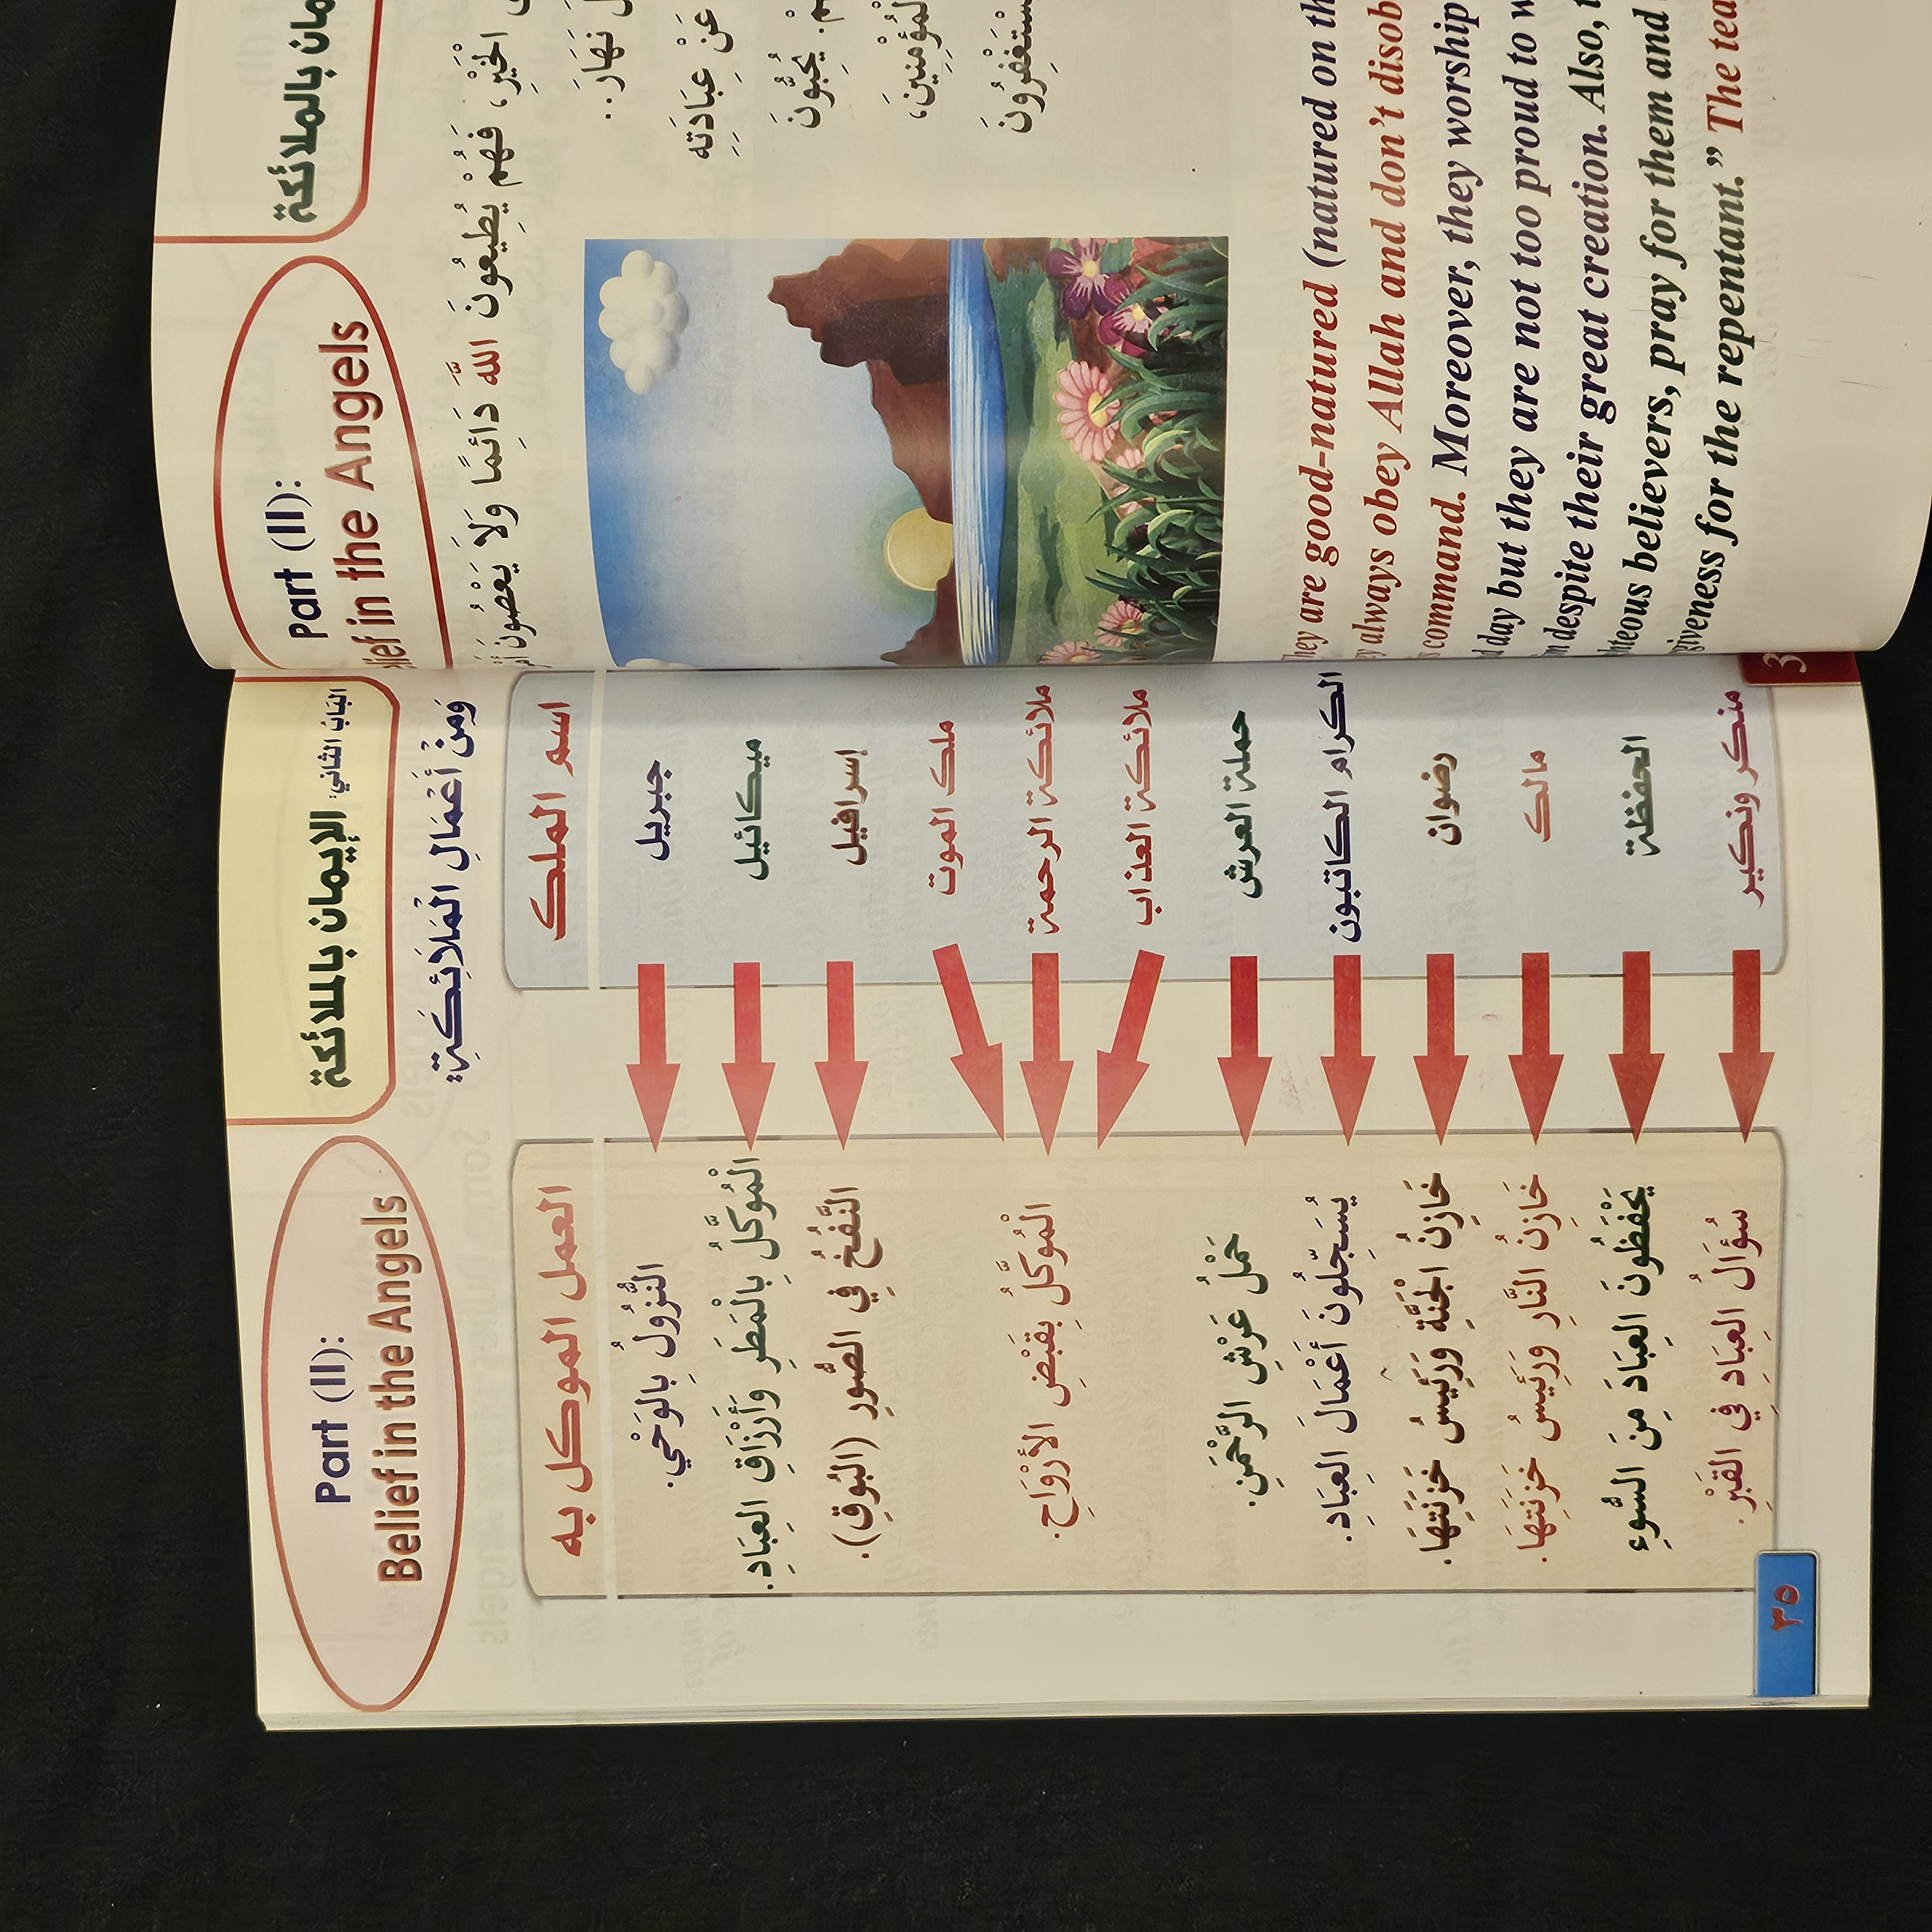 Part (II):
Belief in the Angels
الباب الثاني: الإيمان بالملائكة
وَمِنْ أَعْمَالِ الْمَلَائِكَةِ:
اسم الملك
العمل الموكل به
جبريل
النُّزُولُ بِالوَحْيِ.
ميكائيل
الْمُوَكَّلُ بِالْمَطَرِ وَأَرْزَاقِ العِبَادِ.
إسرافيل
النَّفْخُ فِي الصُّورِ (البُوقِ).
ملك الموت
ملائكة الرحمة
ملائكة العذاب
الْمُوَكَّلُ بِقَبْضِ الأَرْوَاحِ.
حملة العرش
حَمْلُ عَرْشِ الرَّحْمَنِ.
الكرام الكاتبون
يُسَجِّلُونَ أَعْمَالَ العِبَادِ.
رضوان
خَازِنُ الْجَنَّةِ وَرَئِيسُ خَزَنَتِهَا.
مالك
خَازِنُ النَّارِ وَرَئِيسُ خَزَنَتِهَا.
الحفظة
يَحْفَظُونَ العِبَادَ مِنَ السُّوءِ
منكر ونكير
سُؤَالُ العِبَادِ فِي القَبْرِ.
٣٥
Part (II):
in the Angels
بالملائكة
الْخَيْرِ، فَهُمْ يُطِيعُونَ اللَّهَ دَائِمًا وَلَا يَعْصُونَ
نَهَارَ..
عَنْ عِبَادَتِهِ
يُحِبُّونَ
يَسْتَغْفِرُونَ
are good-natured (natured on
always obey Allah and don't
command. Moreover, they worship
day but they are not too proud to
despite their great creation. Also,
believers, pray for them and
for the repentant.” The